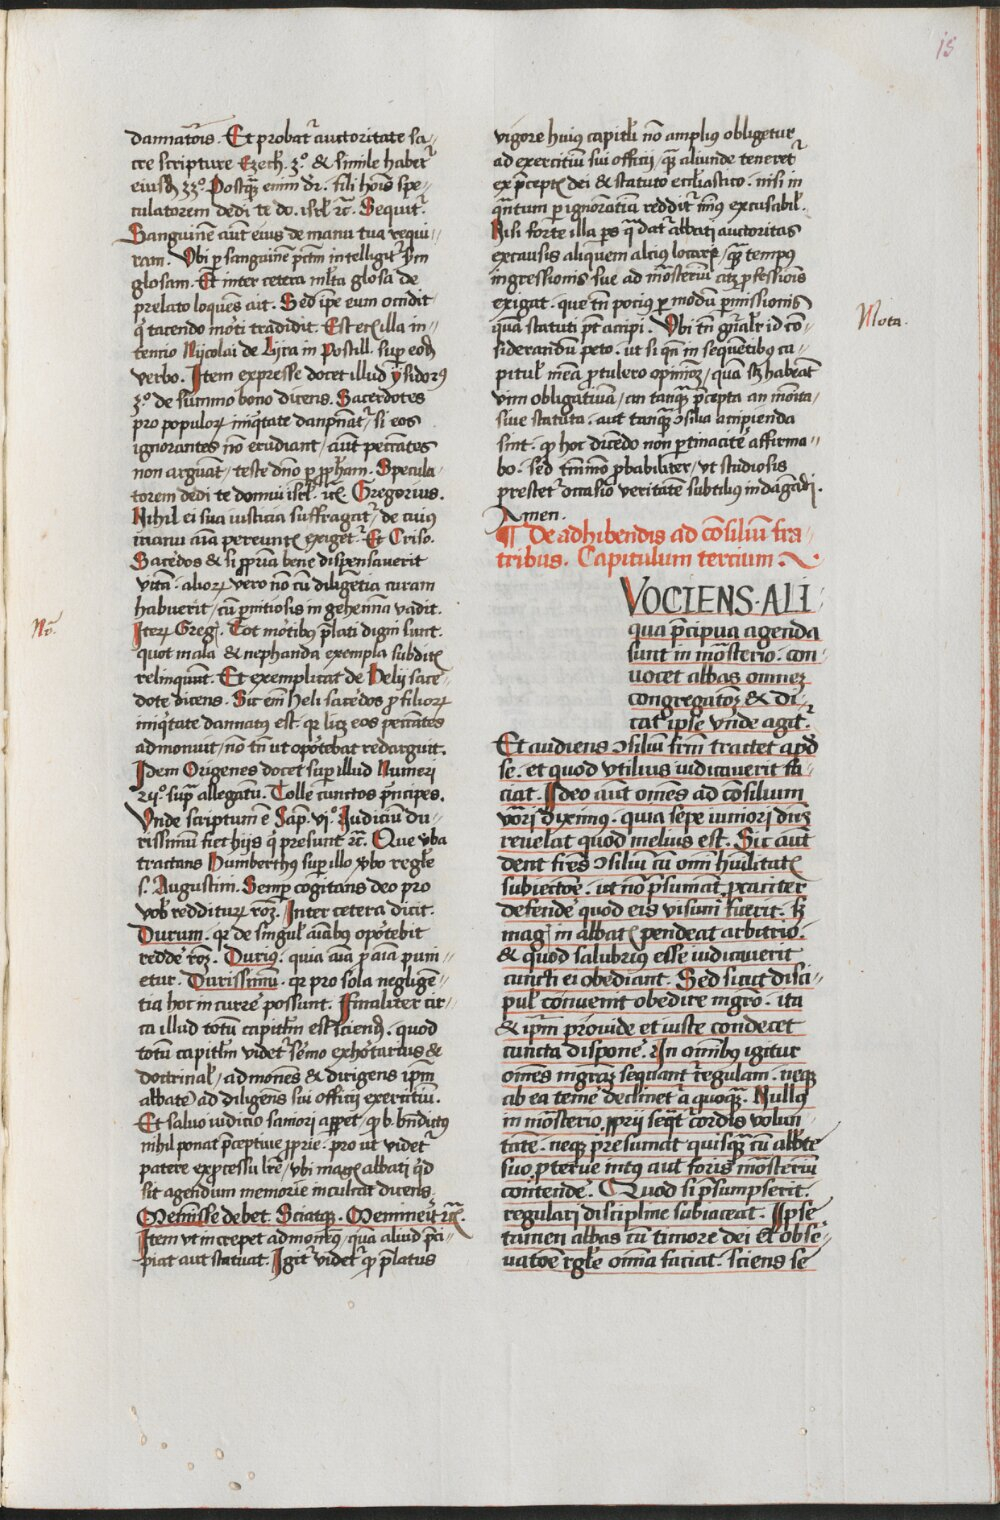 15
dannatōis. Et probat᷑ auctoritate sa-
cre scripture Ezech. 3.º & simile habet᷑
eiusdē 33.º Postq̄ enim dr̄. fili hoīs spe-
culatorem dedi te do. isrl̄ ⁊c̄. Sequit᷑.
Sanguinē aūt eius de manu tua requi-
ram. Vbi ꝑ sanguinē pctm̄ intelligit᷑ scdm
glosam. Et inter cetera ml̄ta glosa de
prelato loquēs ait. Sed ip̄e eum occidit
q̇ tacendo morti tradidit. Est ecī illa in-
tentio Nijcolai de Lijra in Postill. suꝑ eodē
verbo. Item expresse docet illud ysidorꝰ
3.º de summo bono dicens. Sacerdotes
pro populorꝫ iniq̇tate dampnāt᷑, si eos
ignorantes nō erudiant, aūt peccātes
non arguāt, teste dn̄o ꝑ ꝓph̄am. Specula-
torem dedi te domui isrl̄. ⁊c̄. Gregorius.
Nihil ei sua iusticia suffragat᷑, de cuiꝰ
manu aīa pereuntis exiget᷑. Et Criso.
Sacēdos & si ꝓpriā bene dispensaverit
vitā. aliorꝫ vero nō cū diligētia curam
habuerit, cū ꝑnitiosis in gehennā vadit.
Iterꝫ Greg. Tot mortibꝰ p̄lati digni sunt.
quot mala & nephanda exempla subditis
relinquūt. Et exemplicat de Helij sacē-
dote dicens. Sic enī Heli sacēdos ꝓ filiorꝫ
iniq̇tate dannatꝰ est. qr licꝫ eos peccātes
admonuit, nō tn̄ ut oportebat redarguit.
Idem Origenes docet suꝑ illud Numeri
25.º supᷓ allegatū. Tolle cunctos p̄ncipes.
Vnde scriptum ē Sap. vi.º Iudiciū du-
rissimū fiet hijs q̇ presunt ⁊c̄. Que v̄ba
tractans Humbertꝰ suꝑ illo v̄bo regl̄e
s. Augustini. Semꝑ cogitans deo pro
vob̄ redditurꝫ rōꝫ. Inter cetera dicit.
Durum. qr de singul̄ aīabꝰ oportebit
reddē rōꝫ. Durius. quia aīa ꝑ aīa puni-
etur. Durissimū. qr pro sola negligē-
tia hoc incurrē possunt. Finaliter cir-
ca illud totū capitl̄m est sciendū. quod
totū capitl̄m videt᷑ sermo exhortatius &
doctrinal̄, admonēs & dirigens ip̄m
abbatē ad diligens sui officij exercitiū.
Et saluo iudicio saniori apꝑet, q̄ b. bn̄dictꝰ
nihil ponat p̄ceptiue ꝓprie. pro ut videt᷑
patere ex ꝓcessu lr̄e, vbi magis abbati qd
sit agendum memorie inculcat dicens.
Meminisse debet. Sciatqꝫ. Meminerit ⁊c̄.
Item vt increpet admonitꝰ, quā aliud p̄ci-
piat aut statuat. Igit᷑ videt᷑ q̄ p̄latus
Nō.
vigore huiꝰ capitl̄i nō ampliꝰ obligetur
ad exercitiū sui officij, quā aliunde teneret᷑
ex p̄ceptis dei & statuto eccl̄iastico. nisi in
quātum ꝑ ignorātiā reddit᷑ minꝰ excusabil̄.
Nisi forte illa ꝑs qᷓ dat᷑ abbati auctoritas
ex causis aliquem alciꝰ locare, quā tempꝰ
ingressionis sue ad monasteriū citꝫ ꝓfessiōis
exigat. que tn̄ pociꝰ ꝑ modū ꝑmissionis
quā statuti pt̄ accipi. Vbi tn̄ gn̄ral̄r id cō-
siderandū peto. ut si quā in sequētibꝰ ca-
pitul̄ meā ꝓtulero opinionē, quā scꝫ habeāt
vim obligatiuā, an tanquā p̄cepta an monita,
siue statuta. aut tanquā ↄsilia accipienda
sint. q̄ hoc dicēdo non ꝑtinacitē affirma-
bo. sed tm̄modo ꝓbabiliter, vt studiosis
prestet᷑ occasio veritatē subtiliꝰ indagādi.
Amen.
Nota.
¶ De adhibendis ad cōsiliū fra-
tribus. Capitulum tercium.
VOCIENS ALI
qua p̄cipua agenda
sunt in monasterio. con-
uocet abbas omnē
congregatōꝫ & di-
cat ip̄se vnde agit᷑.
Et audiens ↄsiliū frm̄ tractet apd
se. et quod vtilius iudicauerit fa-
ciat. Ideo aūt omēs ad cōsilium
vocari diximꝰ. quia sepe iuniori dn̄s
reuelat quod melius est. Sic aūt
dent frēs ↄsiliū cū omī hūilitatis
subiectōe. ut nō p̄sumāt procaciter
defendē quod eis visum fuerit. sꝫ
magis in abbatis pendeat arbitrio.
& quod salubriꝰ esse iudicauerit
cuncti ei obediant. Sed sicut disci-
pul̄ conuenit obedire mgr̄o. ita
& ip̄m prouide et iuste condecet
cuncta disponē. In omībꝰ igitur
omēs mgr̄aꝫ sequant᷑ regulam. neqꝫ
ab ea temē declinet᷑ a quoquā. Nullꝰ
in monasterio ꝓprij seqt᷑ cordis volun-
tatē. neqꝫ presumat quisquā cū abb̄te
suo ꝓterue intꝰ aut foris monasteriū
contendē. Quod si p̄sumpserit.
regulari discipline subiaceat. Ipse
tamen abbas cū timore dei et obsē-
uatōe rgl̄e omīa faciat. sciens se